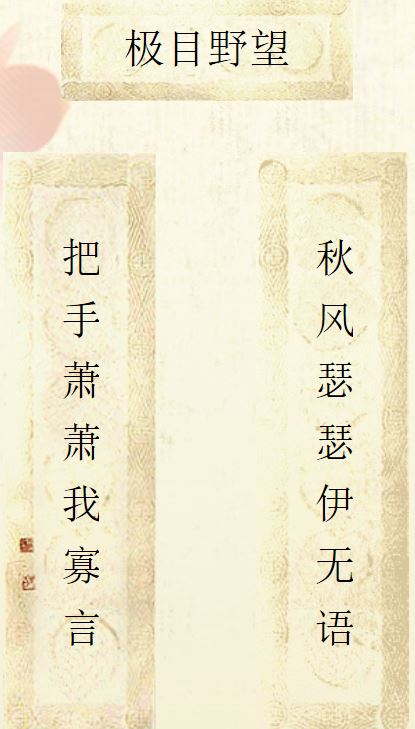 极目野望
秋风瑟瑟伊无语
把手萧萧我寡言